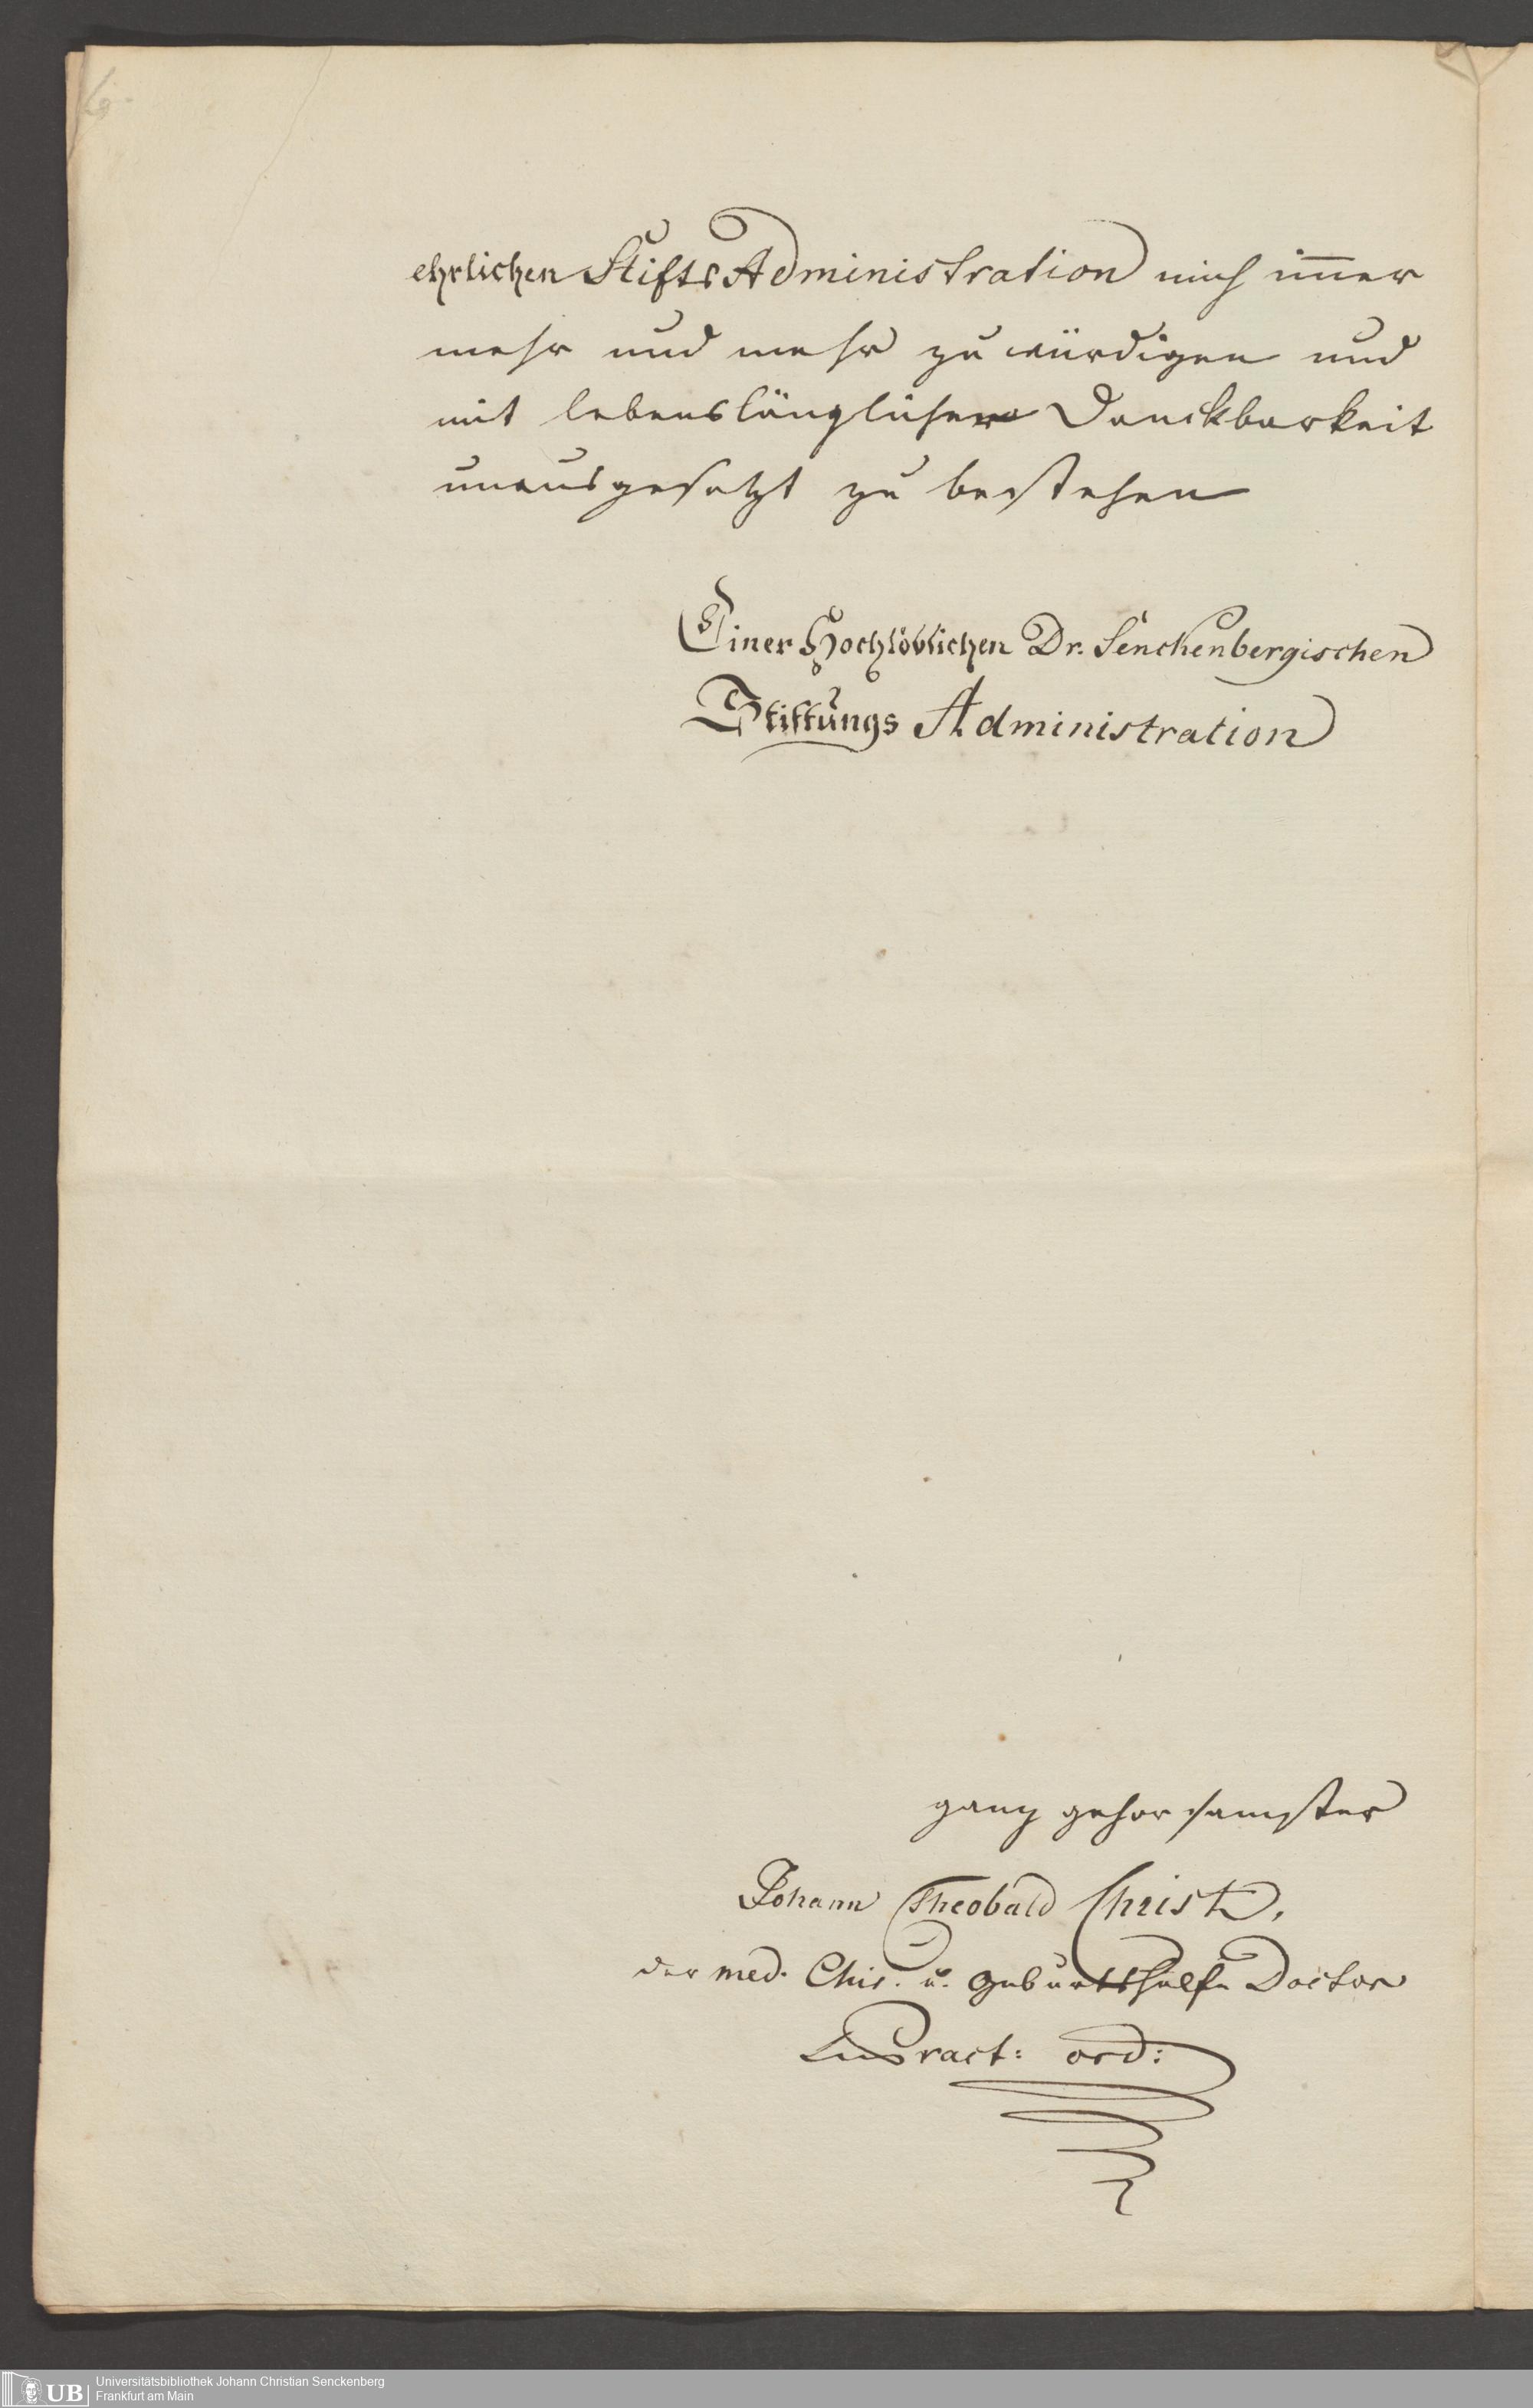 ehrlichen Stifts Administration mich im̅er
mehr und mehr zu würdigen und
mit lebenslänglicher Danckbarkeit
unausgesetzt zu bestehen
Einer Hochlöblichen Dr. Senckenbergischen
Stiftungs Administration
ganz gehorsamster
Johann Theobald Christ,
der med. Chir. u. Geburtshülfe Doctor
Pract: ord:
UB
Universitätsbibliothek Johann Christian Senckenberg
Frankfurt am Main